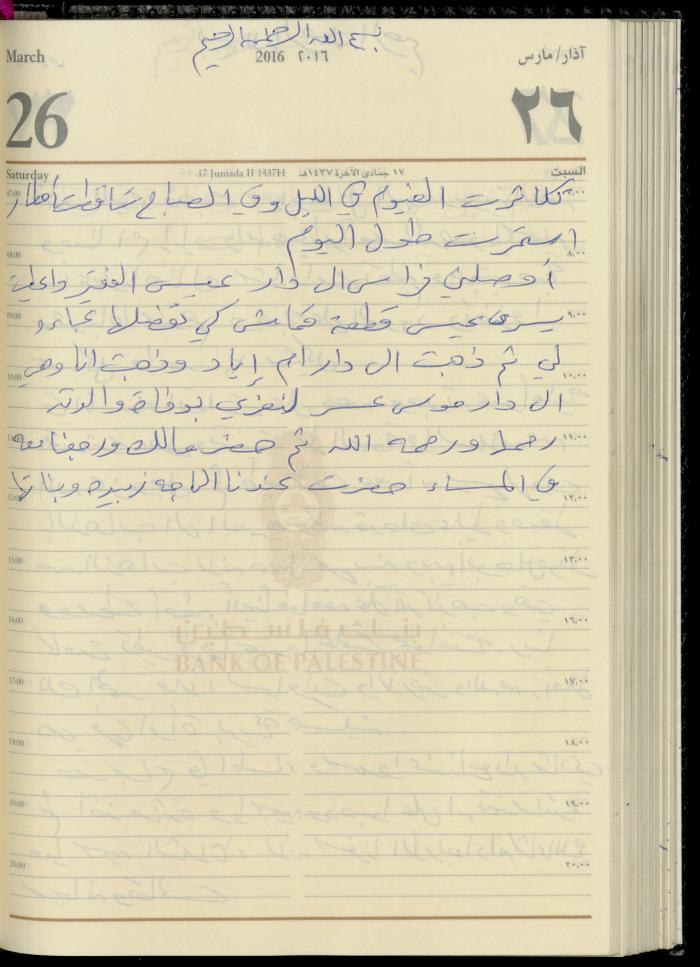 بسم الله الرحمن الرحيم
March 2016 ٢٠١٦ آذار/مارس
26 ٢٦
Saturday 17 Jumada II 1437H ١٧ جمادى الآخرة ١٤٣٧هـ السبت
07:00 تكاثرت الغيوم في الليل وفي الصباح تساقطت امطار ٧,٠٠
استمرت طول اليوم
08:00 ٨,٠٠
أوصلني فراس الى دار عيسى الفقير واعطيت
09:00 يسرى عيسى قطعة قماش كي تفصلها عباءه ٩,٠٠
لي ثم ذهبت الى دار ام إياد وذهبت انا وهي
10:00 ١٠,٠٠
الى دار موسى عسر لنعزي بوفاة والدته
رحمها ورحمه الله ثم حضر مالك ورجعنا معه ١١,٠٠
في المساء حضرت عندنا الحاجه زبيده وبناتها
12:00 ١٢,٠٠
15:00 ١٣,٠٠
16:00 ١٦,٠٠
بنك فلسطين
BANK OF PALESTINE
17:00 ١٧,٠٠
18:00 ١٨,٠٠
19:00 ١٩,٠٠
20:00 ٢٠,٠٠